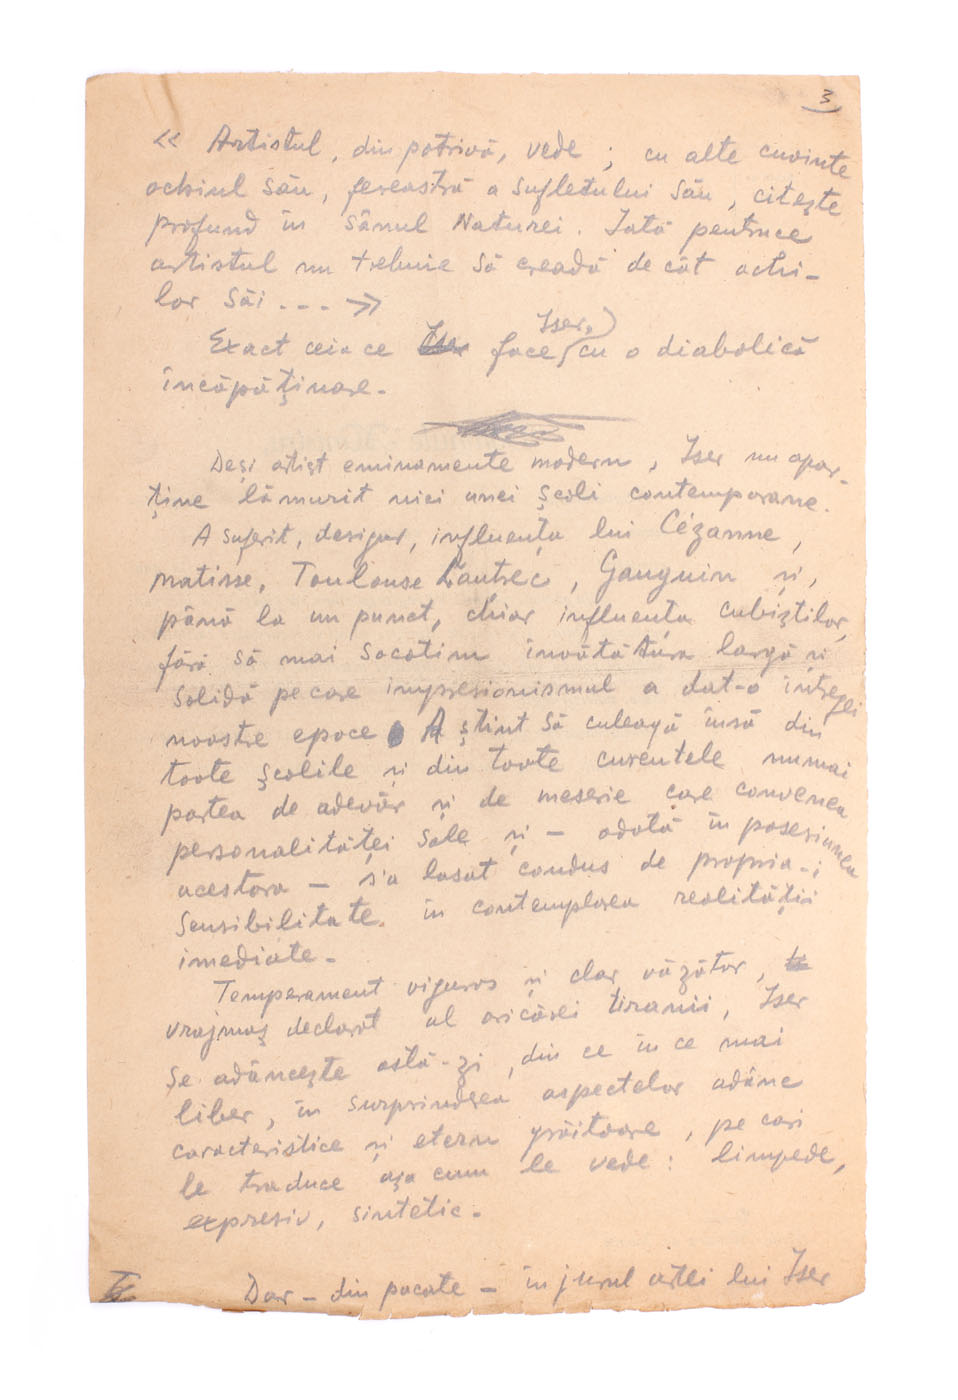 3
« Artistul, din potrivă, vede ; cu alte cuvinte
ochiul său, fereastră a sufletului său, citește
profund în sânul Naturei. Iată pentruce
artistul nu trebuie să creadă de cât ochi-
lor săi . . . »
Iser,
Exact ceia ce Iser face, cu o diabolică
încăpățînare.
Deși artist eminamente modern, Iser nu apar-
ține lămurit nici unei școli contemporane.
A suferit, desigur, influența lui Cézanne,
Matisse, Toulouse Lautrec, Gauguin și,
până la un punct, chiar influența cubiștilor,
fără să mai socotim învătătura largă și
solidă pe care impresionismul a dat-o întregei
noastre epoce. A știut să culeagă însă din
toate școlile și din toate curentele numai
partea de adevăr și de meserie care convenea
personalităței sale și — odată în posesiunea
acestora — s'a lasat condus de propria-i
sensibilitate în contemplarea realității
imediate.
Temperament viguros și clar văzător,
vrajmaș declarat al oricărei tiranii, Iser
se adâncește astă-zi, din ce în ce mai
liber, în surprinderea aspectelor adânc
caracteristice și etern grăitoare, pe cari
le traduce așa cum le vede : limpede,
expresiv, sintetic.
Dar — din pacate — în jurul artei lui Iser